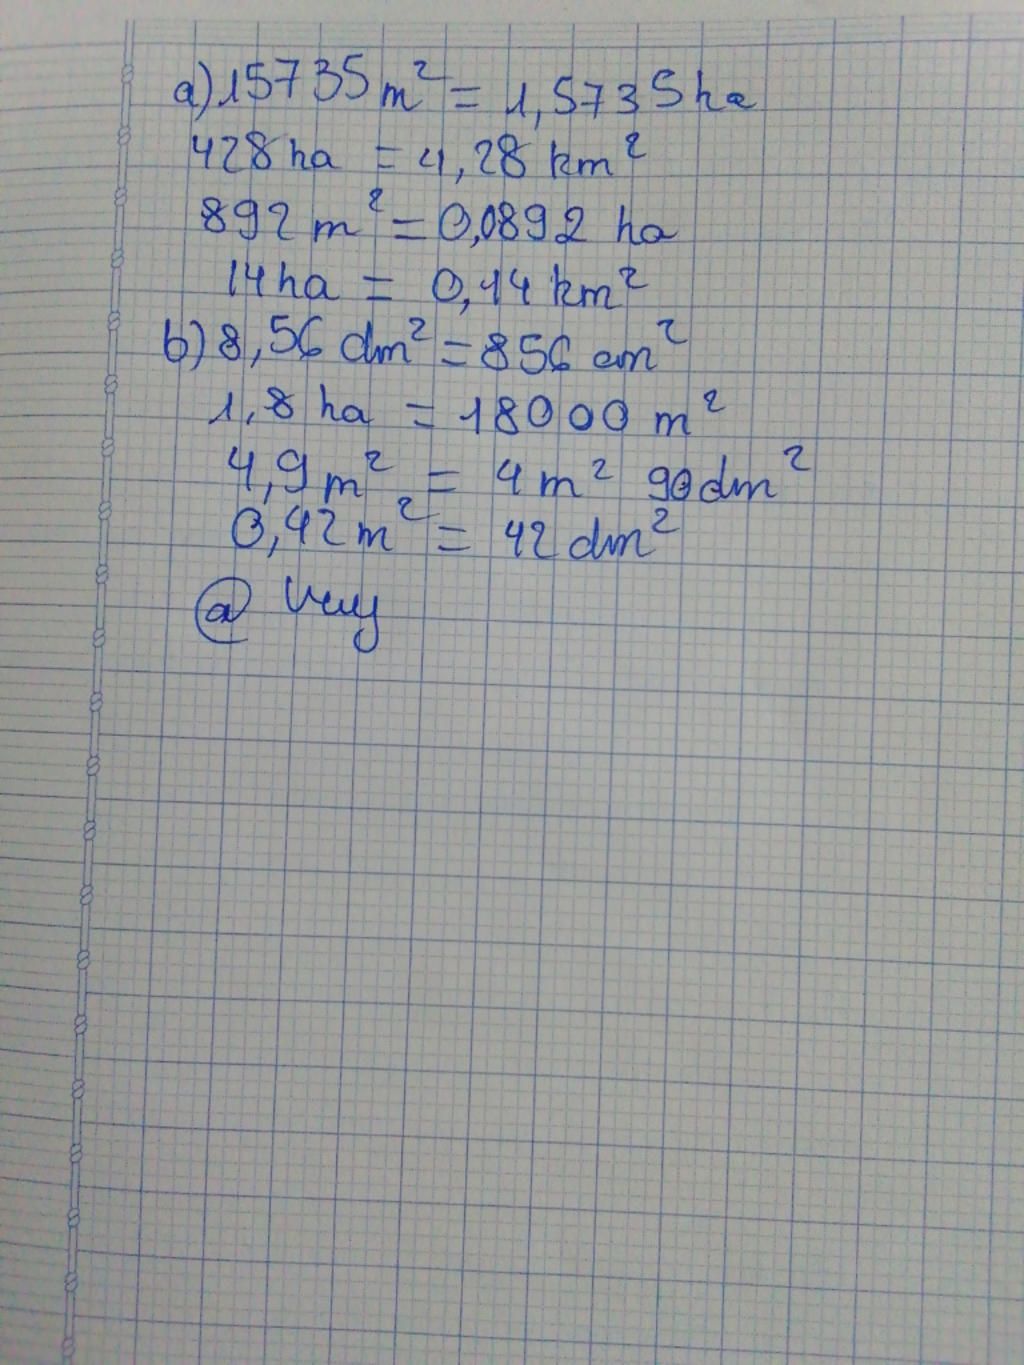 a) 15735 m² = 1,5735 ha
428 ha = 4,28 km²
892 m² = 0,0892 ha
14 ha = 0,14 km²
b) 8,56 dm² = 856 cm²
1,8 ha = 18000 m²
4,9 m² = 4 m² 90 dm²
0,42 m² = 42 dm²
@